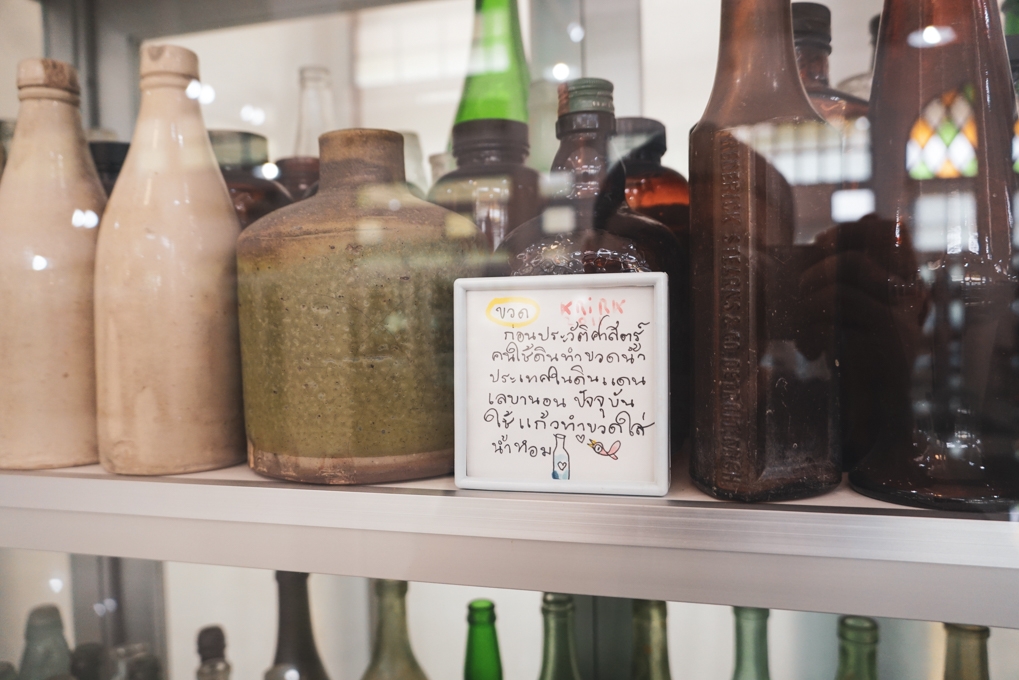 ขวด
ก่อนประวัติศาสตร์
คนใช้ดินทำขวดน้ำ
ประเทศในดินแดน
เลบานอน ปัจจุบัน
ใช้แก้วทำขวดใส่
น้ำหอม